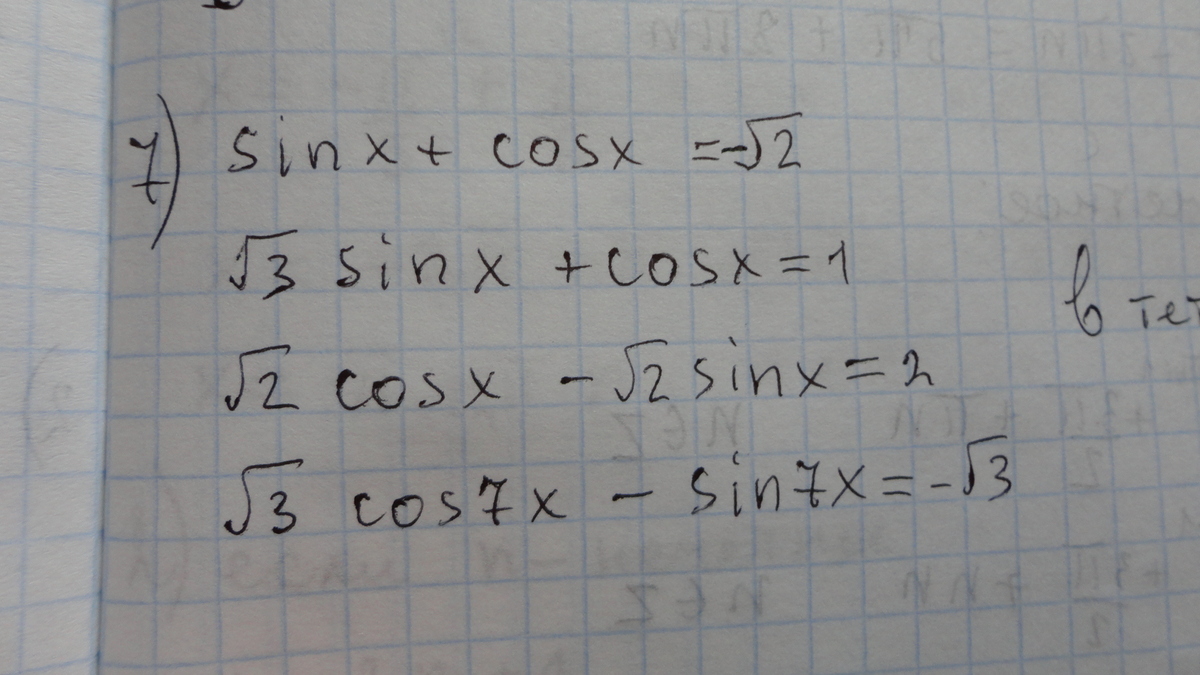 7) sinx + cosx = -√2
√3 sinx + cosx = 1
в тет
√2 cosx - √2 sinx = 2
√3 cos7x - sin7x = -√3